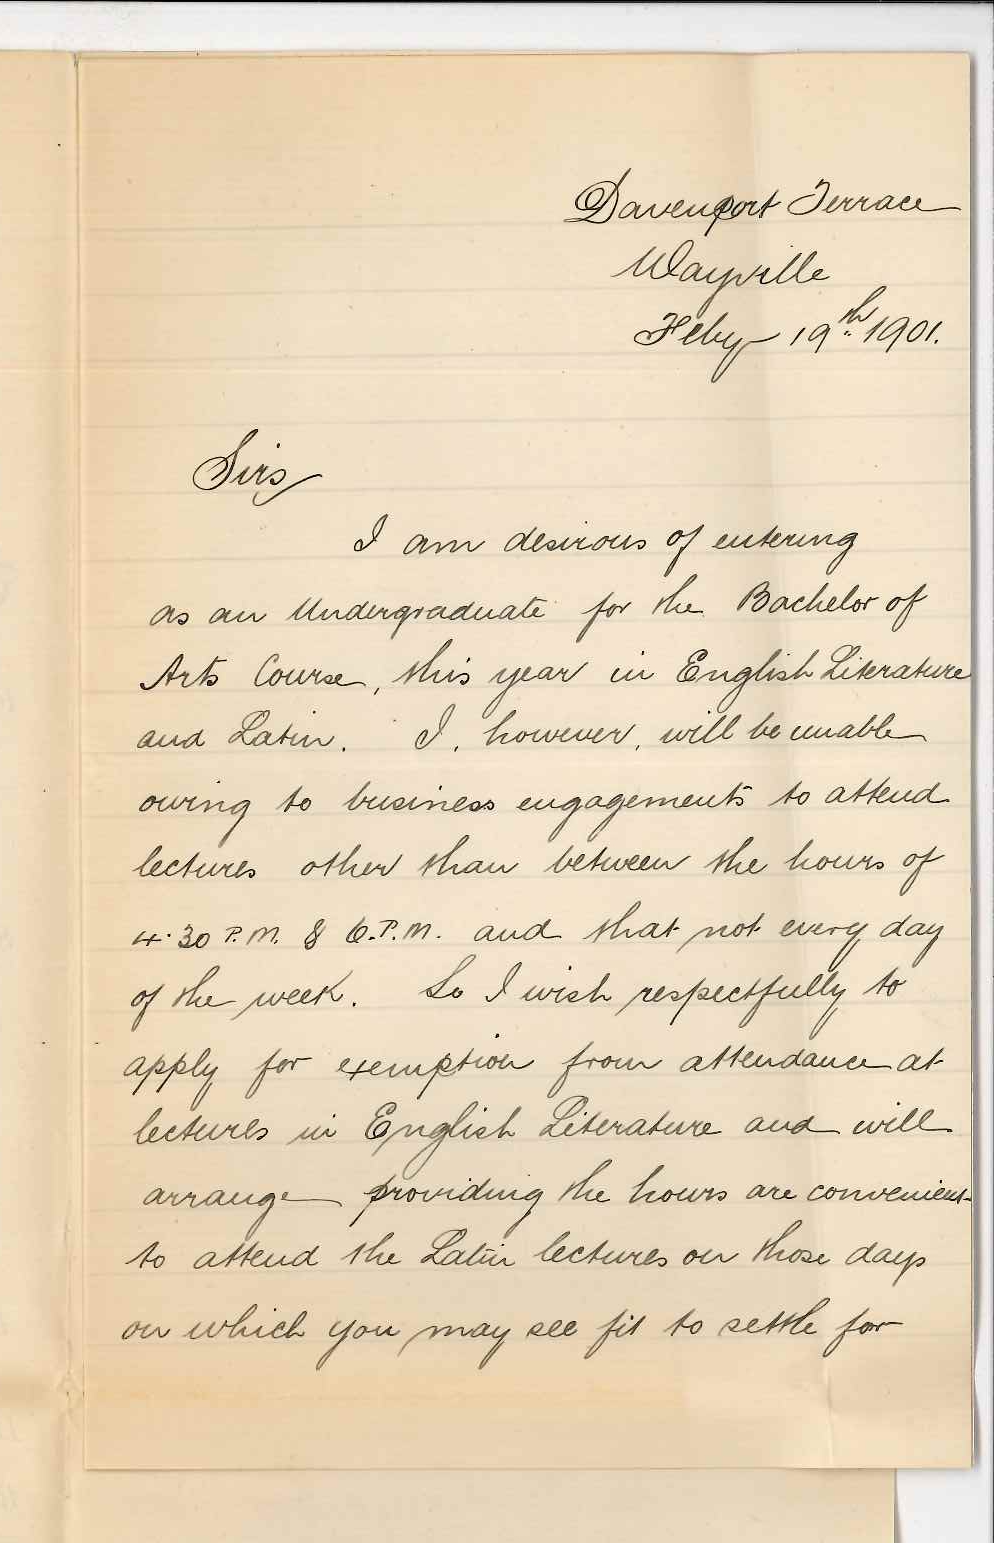 Davenport Terrace
Wayville
Feby 19th 1901.
Sirs
I am desirous of entering
as an Undergraduate for the Bachelor of
Arts Course, this year in English Literature
and Latin. I, however, will be unable
owing to business engagements to attend
lectures other than between the hours of
4.30 P.M. & 6.P.M. and that not every day
of the week. So I wish respectfully to
apply for exemption from attendance at
lectures in English Literature and will
arrange providing the hours are convenient
to attend the Latin lectures on those days
on which you may see fit to settle for